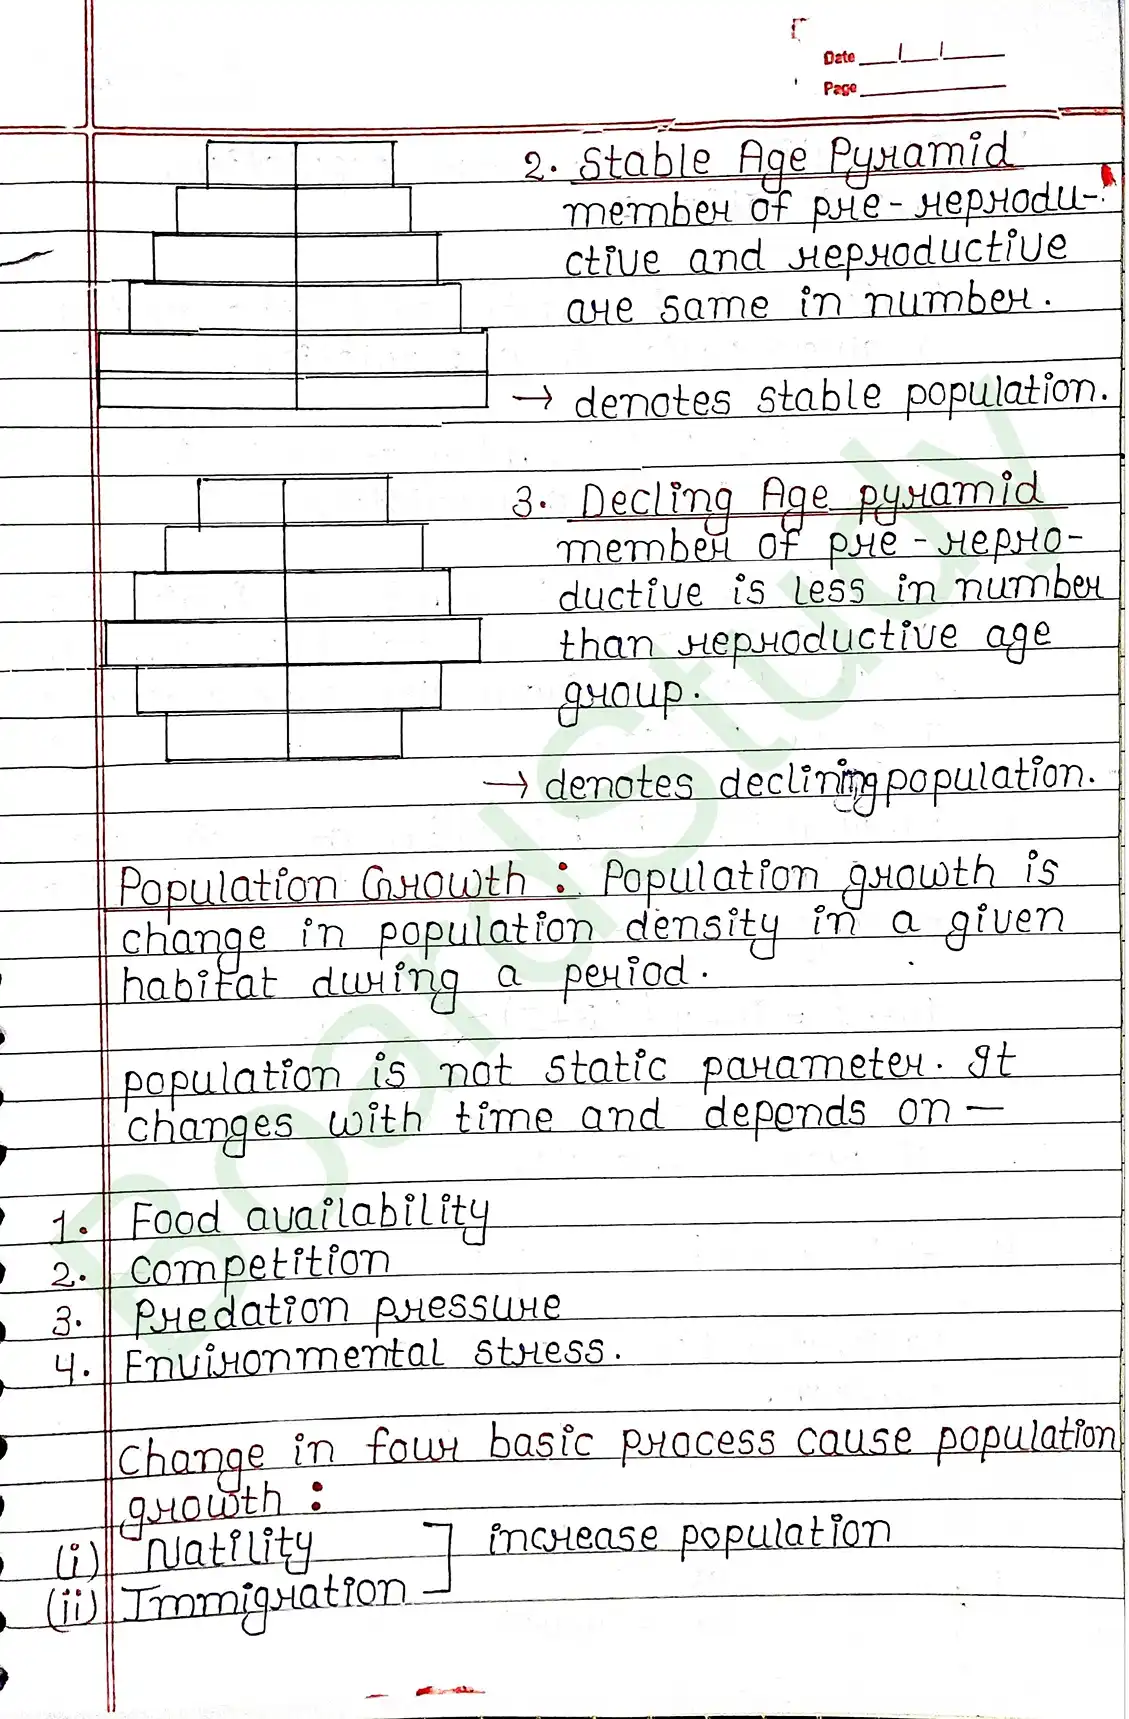 Date
Page
2. Stable Age Pyramid
member of pre-reprodu-
ctive and reproductive
are same in number.
→ denotes stable population.
3. Decling Age pyramid
member of pre-repro-
ductive is less in number
than reproductive age
group.
→ denotes declining population.
Population Growth : Population growth is
change in population density in a given
habitat during a period.
population is not static parameter. It
changes with time and depends on —
1. Food availability
2. Competition
3. Predation pressure
4. Envirionmental stress.
Change in four basic process cause population
growth :
(i) Natility
(ii) Immigration
increase population
BoardStudy